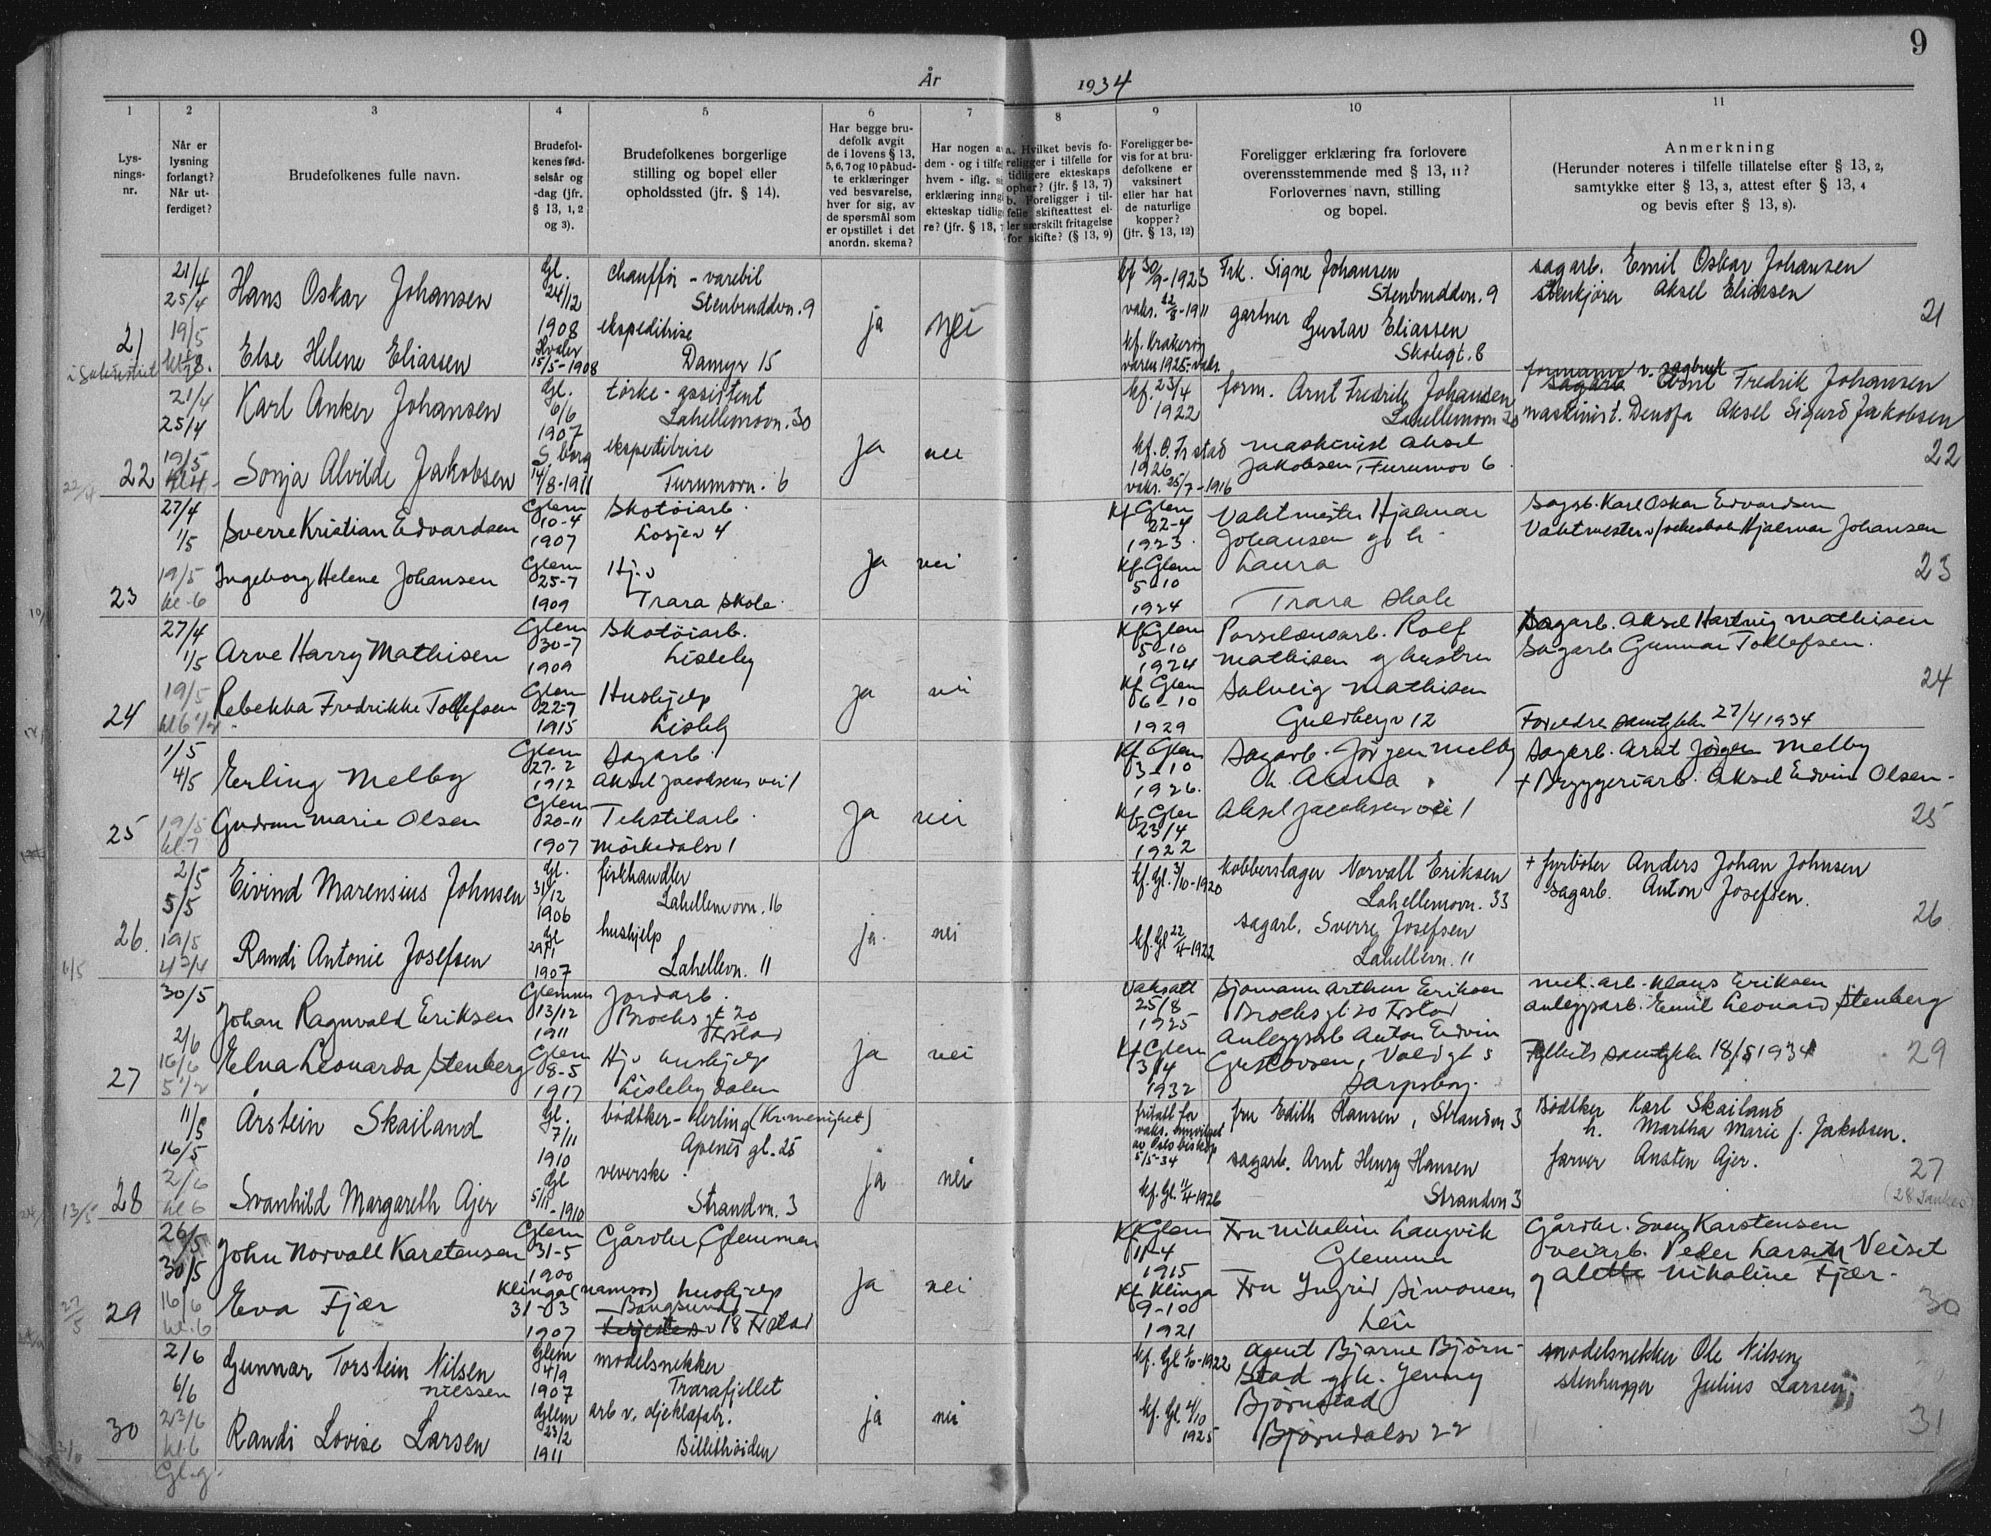 9
År 1934
1 2 3 4 5 6 7 8 9 10 11
Lys-
nings-
nr.
Når er
lysning
forlangt?
Når ut-
ferdiget?
Brudefolkenes fulle navn.
Brudefol-
kenes fød-
selsår og
-dag (jfr.
§ 13, 1, 2
og 3).
Brudefolkenes borgerlige
stilling og bopel eller
opholdssted (jfr. § 14).
Har begge bru-
defolk avgit
de i lovens § 13,
5, 6, 7 og 10 påbud-
te erklæringer
ved besvarelse,
hver for sig, av
de spørsmål som
er opstillet i det
anordn. skema?
Har nogen a
dem - og i tilfe
hvem - iflg. s
erklæring inng
ekteskap tidlig
re? (jfr. § 13,
a. Hvilket bevis fo-
religger i tilfelle for
tidligere ekteskaps
opher? (jfr. § 13, 7)
b. Foreligger i til-
felle skifteattest el-
ler særskilt fritagelse
for skifte? (§ 13, 9)
Foreligger be-
vis for at bru-
defolkene er
vaksinert
eller har hat
de naturlige
kopper?
(jfr. § 13, 12)
Foreligger erklæring fra forlovere
overensstemmende med § 13, 11?
Forlovernes navn, stilling
og bopel.
Anmerkning
(Herunder noteres i tilfelle tillatelse efter § 13, 2,
samtykke efter § 13, 3, attest efter § 13, 4
og bevis efter § 13, 8).
21
21/4
25/4
19/5
Hans Oskar Johansen
Else Helene Eliassen
Gl.
24/12
1908
Hvaler
15/5-1908
chauffør - varebil
Stenbruddvn. 9
ekspeditrise
Damyr 15
ja nei
kf 30/9-1923
vaks. 22/8-1911
kf. Kråkerøy
våren 1925-vaks.
Frk. Signe Johansen
Stenbruddvn. 9
gartner Gustav Eliassen
Skolegt. 8
sagarb. Emil Oskar Johansen
stenkjører Aksel Eliassen
21
22
21/4
25/4
19/5
Karl Anker Johansen
Sonja Alvilde Jakobsen
Gl.
6/6
1907
S borg
14/8-1911
tørke-assistent
Lahellemovn. 30
ekspeditrise
Furumovn. 6
ja nei
kf. 23/4
1922
kf. Ø. Fr stad
1926
vaks. 25/7-1916
form. Arnt Fredrik Johansen
Lahellemovn 30
maskinist Aksel
Jakobsen, Furumov 6
formann v. sagbruk
sagarb Arnt Fredrik Johansen
maskinist. Denofa Aksel Sigurd Jakobsen
22
23
27/4
1/5
19/5
kl. 6
Sverre Kristian Edvardsen
Ingeborg Helene Johansen
Glem
10-4
1907
Glem
25-7
1909
Skotøiarb.
Losjev 4
Hj. v
Trara skole.
ja nei
Kf Glem
22-4
1923
Kf. Glem
5-10
1924
Vaktmester Hjalmar
Johansen og h.
Laura
Trara skole
Sagb. Karl Oskar Edvardsen
Hjalmar Johansen
23
24
27/4
1/5
19/5
kl 6 1/2
Arve Harry Mathisen
Rebekka Fredrikke Tollefsen
Glem
30-7
1909
Glem
22-7
1915
Skotøiarb.
Lisleby
Hushjelp
Lisleby
ja nei
Kf Glem
5-10
1924
Kf. Glem
6-10
1929
Porselænsarb. Rolf
Mathisen og hustru
Solveig Mathisen
Guldbergv 12
Sagarb. Aksel Hartvig Mathisen
Sagarb Gunnar Tollefsen.
Foreldre samtykke 27/4 1934
24
25
1/5
4/5
19/5
kl 7
Erling Melby
Gudrun Marie Olsen
Glem
27-2
1912
Glem
20-11
1907
Sagarb.
Aksel Jacobsens vei 1
Tekstilarb.
Mørkedalsv 1
ja nei
Kf. Glem
3-10
1926.
Kf. Glem
23/4
1922
Sagarb. Jörgen Melby
h. Anna
Aksel Jacobsens vei 1
Sagarb. Arnt Jörgen Melby
+ Bryggeriarb. Aksel Edvin Olsen.
25
26.
2/5
5/5
19/5
4 3/4
Eivind Marensius Johnsen
Randi Antonie Josefsen
Gl.
31/12
1906
Gl
29/1
1907
fiskhandler
Lahellemovn. 16
hushjelp
Lahellevn. 11
ja. nei
kf. Gl. 3/10-1920
kf. Gl 22/4-1922
kobberslager Norvall Eriksen
Lahellemovn. 33
sagarb. Sverre Josefsen
Lahellevn. 11
+ fyrbøter Anders Johan Johnsen
sagarb. Anton Josefsen.
26
27
30/5
2/6
16/6
5 1/2
Johan Ragnvald Eriksen
Elna Leonarda Stenberg
Glemmen
13/12
1911
Glem
8-5
1917
Jordarb.
Brochs gt 20
Frstad
Hj. v hushjelp
Lisleby dalen
ja nei
Vaksatt
25/8
1925
Kf Glem
3/4
1932
Sjømann Arthur Eriksen
Brochsgt. 20 Frstad
Anleggsarb Anton Edvin
Gustavsen, Voldgt 5
Sarpsborg.
mek. arb. Klaus Eriksen
anleggsarb. Emil Leonard Stenberg
Fylkets samtykke 18/5 1934
29
28
11/5
16/5
2/6
kl 6
Årstein Skailand
Svanhild Margareth Ajer
Gl.
7/11
1910
Gl
5/11-1910
bødtker - Herling (Kr. menighet)
Apenes gt. 25
veverske.
Strandvn. 3
ja nei
fritatt for
vaks. innvilget
av Oslo biskop
5/5-34
kf. Gl. 11/4-1926
fru Edith Hansen, Strandvn 3
sagarb. Arnt Henry Hansen
Strandvn 3
Bødtker Karl Skailand
h. Martha Marie f. Jakobsen.
farver Ansten Ajer.
27
29
26/5
30/5
16/6
kl. 6
John Norvall Karstensen
Eva Fjær
Glem
31-5
1900
Klinga (Namsos)
31-3
1907
Gårdbr, Glemmen
hushjelp
Bangsund
18 Frstad
ja nei
Kf Glem
11-4
1915
Kf Klinga
9-10
1921
Fru Nikoline Langvik
Glemmen
Fru Ingrid Simonsen
Leie
Gårdbr. Sven Karstensen
veiarb. Peder Larsen Veiset
og Alette Nikoline Fjær.
30
30
2/6
6/6
23/6
kl. 6
Gl. g.
Gunnar Torstein Nilsen
Nilssen
Randi Lovise Larsen
Glem
4/9
1907
Glem
23/2
1911
modelsnekker
Trarafjellet
arb v. oljeklæfabr.
Billethøiden
ja nei
kf. Gl 1/10-1922
kf. Gl 4/10
1925
agent Bjarne Bjørn-
stad og h. Jenny
Bjørnstad
Bjørndalsv 22
modelsnekker Ole Nilsen
stenhugger Julius Larsen
31